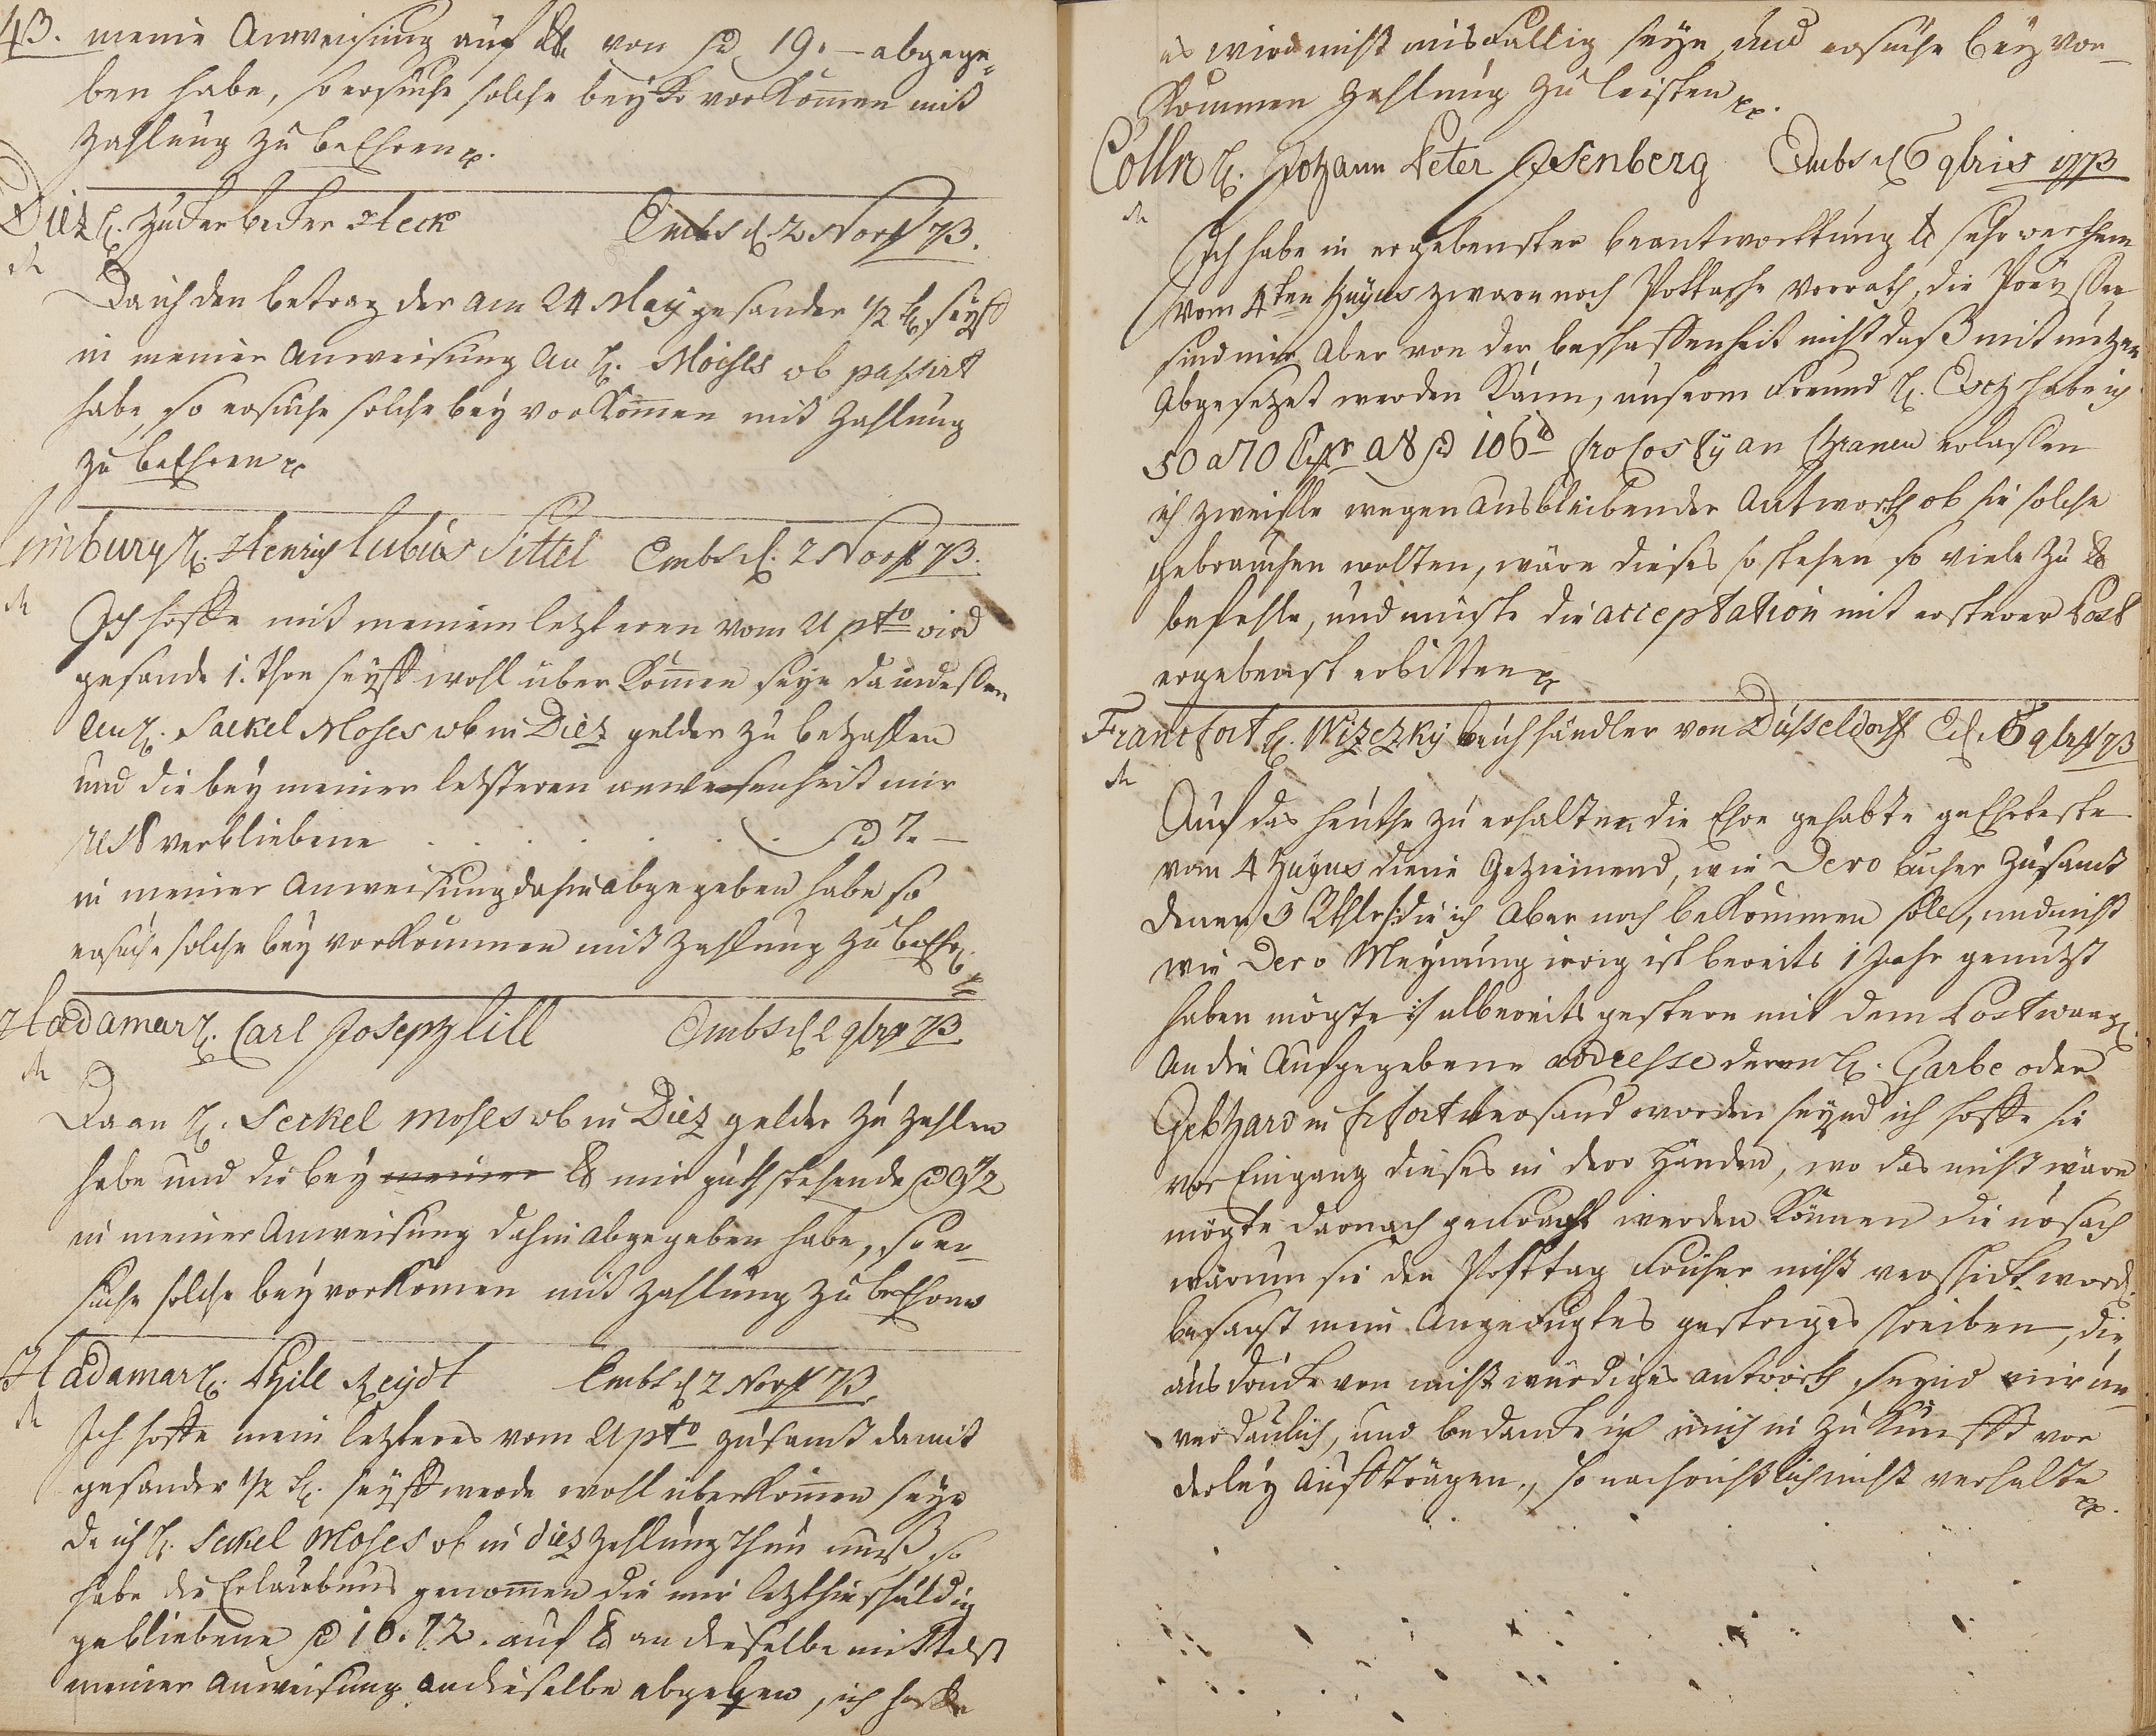 43. meine Anweisung auf von fl 19. – abgege-
ben habe, so ersuche solche bey vorkommen mit
Zahlung zu beEhren
Diez H. Zuckerbecker Heck Embs d. 2 Novr 73.
Da ich den betrag der am 24 May gesander 1/2 seyff
in meiner Anweisung an H. Moisses ob passirt
habe, so ersuche solche bey vorkommen mit Zahlung
zu beEhren
Limburg H. Henrig Lubius Sittel Embs d. 2 Novr 73.
Ich hoffe mit meinem lezteren vom pto wird
gesande 1. Thon seyff wohl überkommen seyn da indessen
An H. Seckel Moses ob in Diez gelder zu bezahlen
und die bey meiner lezteren anwesenheit mir
verbliebene . . . . . . fl 7. –
in meiner Anweisung dahin abgegeben habe so
ersuche solche bey vorkommen mit Zahlung zu beEhr
Hadamar H. Carl Joseph Lill Embs d 2 9br 73.
Da an H. Seckel Moses ob in Diez gelder zu zahlen
habe und die bey meiner mir guthstehende fl 9 1/2
in meiner Anweisung dahin abgegeben habe, so er-
suche solche bey vorkomen mit Zahlung zu beEhren
Hadamar H. Phill Reydt Embs d 2 Novr 73.
Ich hoffe mein lezteres vom pto zusamt damit
gesander 1/2 seyff werde wohl überkommen seyn
da ich H. Seckel Moses ob in diez Zahlung thun muß so
habe die Erlaubnus genommen die mir lezthin schuldig
gebliebene fl 10. 72. auf an dieselbe mittelst
meiner Anweisung an dieselbe abgeben, ich hoffe
es wird nicht misfällig seyn und ersuche bey vor-
kommen Zahlung zu leisten
Cölln H. Johann Peter Isenberg Embs d 6 9bris 1773
Ich habe in ergebenster beantworttung sehr werthem
vom 4ten hujus zwarn noch Pottasche Vorrath, die Preyssen
sind mir Aber von der beschaffenheit nicht daß mit nutzen
Abgesetzet werden kann, unserm Freund H. habe ich
50 a 70 a fl 106 an erlassen
ich zweifle wegen ausbleibender Antworth ob sie solche
gebrauchen wolten, wäre dieses so stehen so viele zu
befehle, und müste die acceptation mit ersterer Post
ergebenst erbitten
Francfort H. Wizezky buchhändler von Düsseldorff E d. 6 9br 73
Auf das heuthe zu erhalten die Ehre gehabte geEhrteste
vom 4 hujus diene Geziemend, wie Dero bücher zusamt
denen 3 Rthlr /: die ich Aber noch bekommen solle, und nicht
wie Dero Meynung irrig ist bereits 1 Jahr genutzt
haben mögte :/ albereits gestern mit dem Postwang
An die Aufgegebene addresse deren H. Garbe oder
Gebhard in frfort versand worden seynd ich hoffe sie
vor Eingang dieses in dero Händen, wo das nicht wäre
mögte darnach gefragt werden können die ursach
warum sie den Posttag früher nicht verschickt word.
besagt mein Angefügtes gestriges schreiben, die
ausdrücke von nicht würdiges antworth seynd mir un-
verdaulich, und bedancke ich mich in Zukunfft vor
derley Auffträgen, so nachrichtlich nicht verhalte